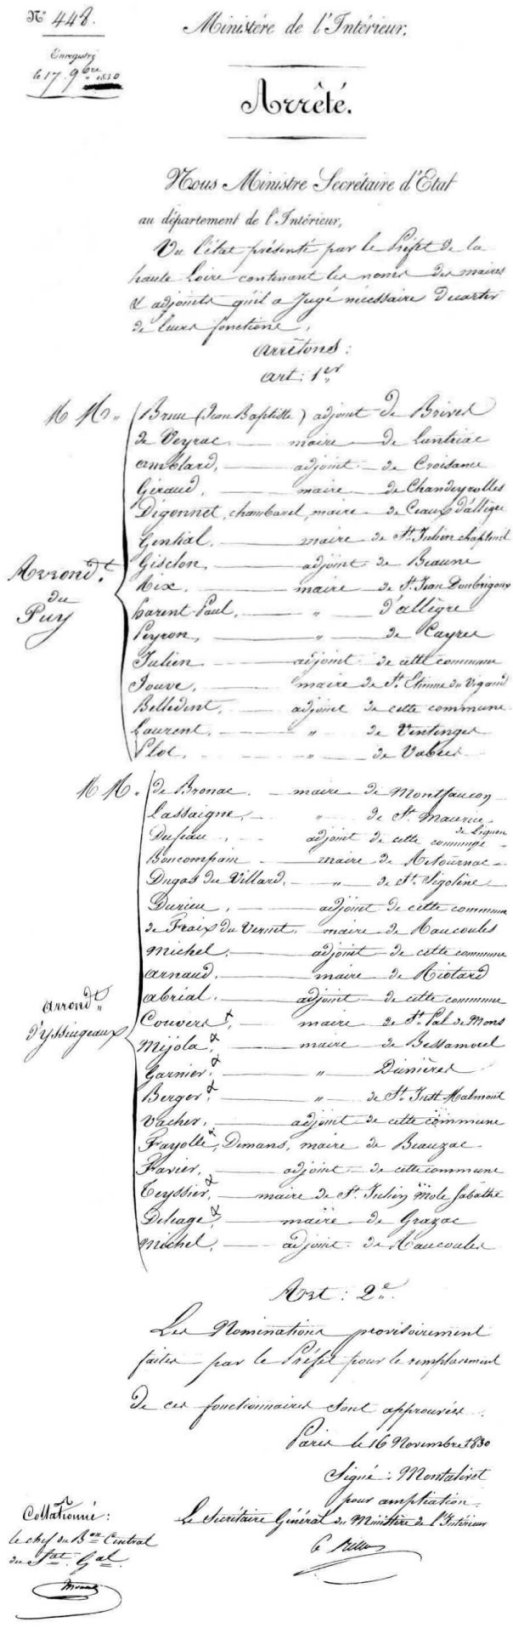 N° 448.
Ministère de l'Intérieur.
Enregistré
le 17 9bre 1830
Arrêté.
Nous Ministre Secrétaire d'Etat
au département de l'Intérieur,
Vu l'état présenté par le Préfet de la
haute Loire contenant les noms des maires
& adjoints qu'il a jugé nécessaire d'écarter
de leurs fonctions,
arrêtons :
art : 1er
M M. Brun (Jean Baptiste) adjoint de Brives
de Veyrac. maire de Lantriac
amblard, adjoint de Croisance
Géraud, maire de Chandeyrolles
Digonnet, chambarel, maire de Ceaux d'allègre
Gential, maire de St. Julien chapteuil
Gisclon, adjoint de Beaune
Rix. maire de St. Jean
Arrondt. du Puy
Parent Paul, " d'allègre
Peyron, " de Cayres
Julien adjoint de cette commune
Jouve, maire de St. Etienne du Vigand
Belledent, adjoint de cette commune
Laurent. " de
Plot. " de Vabres
M M. de Bronac. maire de Montfaucon
Lassaigne, " de St. Maurice de Lignon
adjoint de cette commune
Boncompain maire de Retournac
Dugas du Villard, " de St. Sigolène
Durieu, adjoint de cette commune
de Fraix du Vernet, maire de Raucoules
Michel, adjoint de cette commune
arnaud, maire de Riotard
abrial. adjoint de cette commune
arrondt. d'Yssingeaux
Couvert, maire de St. Pal de Mons
Mijola, maire de Bessamorel
Garnier, " Dunières
Berger, " de St. Just Malmont
Vacher, adjoint de cette commune
Fayolle, Dimans, maire de Beauzac
Favier, adjoint de cette commune
Teyssier, maire de St. Julien mole sabathé
Deleage, maire de Grazac
Michel, adjoint de Raucoules
Art : 2e.
Les Nominations provisoirement
faites par le Préfet pour le remplacement
de ces fonctionnaires sont approuvées.
Paris le 16 Novembre 1830
Signé : Montalivet
pour ampliation
Le Secrétaire Général du Ministère de l'Intérieur
Collationné :
le chef du Bau Central
du Sat. Gal.